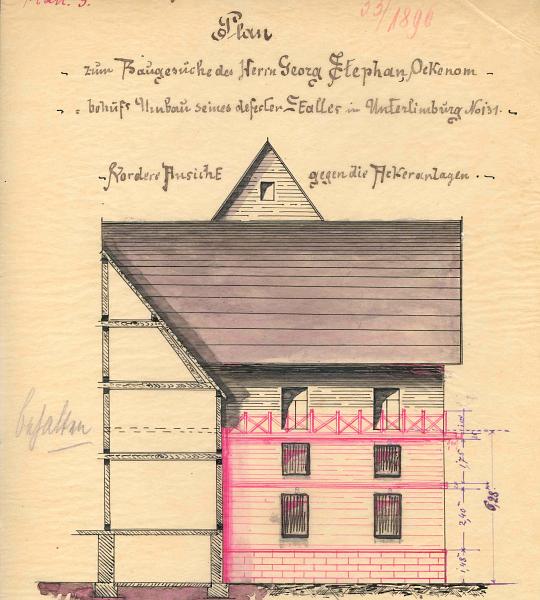 33/1896
Plan
zum Baugesuche des Herrn Georg Stephan, Oekenom
behufs Umbau seines defecten Stalles in Unterlimburg No 131.
Vordere Ansicht gegen die Ackeranlagen.
1,75
2,40
6,28
1,48